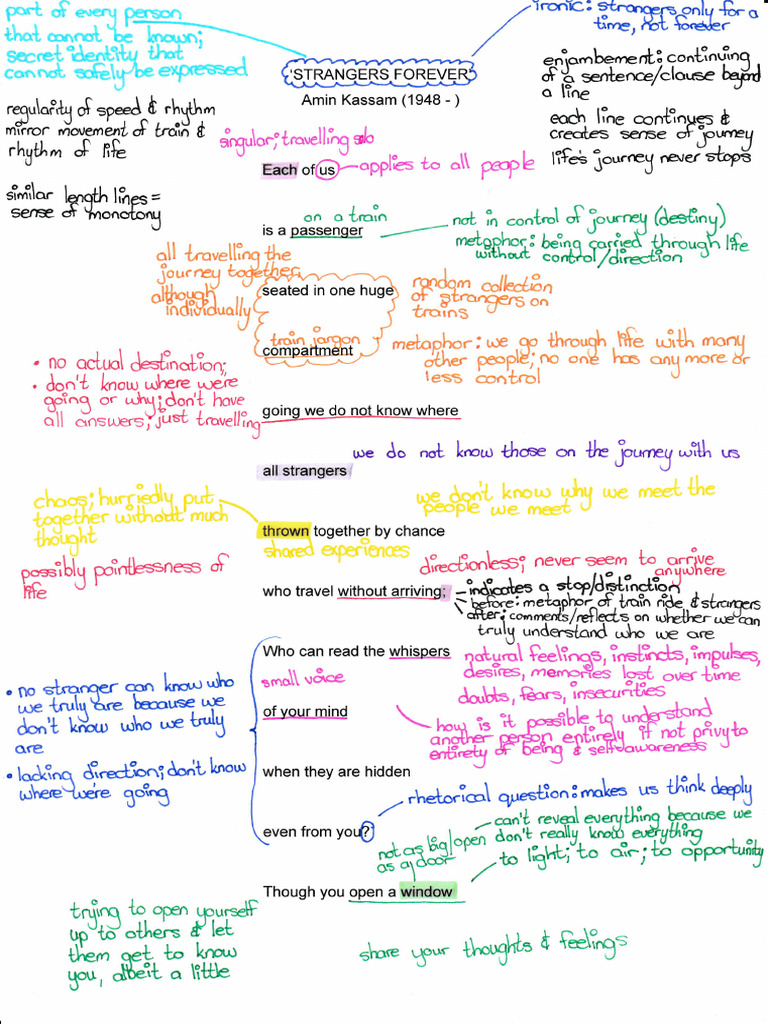 part of every person
that cannot be known;
secret identity that
cannot safely be expressed
ironic: strangers only for a
time, not forever
'STRANGERS FOREVER'
Amin Kassam (1948 - )
enjambement: continuing
of a sentence/clause beyond
a line
each line continues &
creates sense of journey
life's journey never stops
regularity of speed & rhythm
mirror movement of train &
rhythm of life
similar length lines =
sense of monotony
singular; travelling solo
Each of us
applies to all people
on a train
is a passenger
not in control of journey (destiny)
metaphor: being carried through life
without control/direction
all travelling the
journey together,
although
individually
seated in one huge
random collection
of strangers on
trains
train jargon
compartment
metaphor: we go through life with many
other people; no one has any more or
less control
• no actual destination;
• don't know where were
going or why; don't have
all answers; just travelling
going we do not know where
we do not know those on the journey with us
all strangers
chaos; hurriedly put
together without much
thought
we don't know why we meet the
people we meet
thrown together by chance
shared experiences
possibly pointlessness of
life
directionless; never seem to arrive
anywhere
who travel without arriving;
– indicates a stop/distinction
before: metaphor of train ride & strangers
after: comments/reflects on whether we can
truly understand who we are
Who can read the whispers
small voice
of your mind
natural feelings, instincts, impulses,
desires, memories lost over time
doubts, fears, insecurities
how is it possible to understand
another person entirely if not privy to
entirety of being & self-awareness
• no stranger can know who
we truly are because we
don't know who we truly
are
• lacking direction; don't know
where we're going
when they are hidden
rhetorical question: makes us think deeply
even from you?
can't reveal everything because we
don't really know everything
not as big/open
as a door
to light; to air; to opportunity
Though you open a window
trying to open yourself
up to others & let
them get to know
you, albeit a little
share your thoughts & feelings